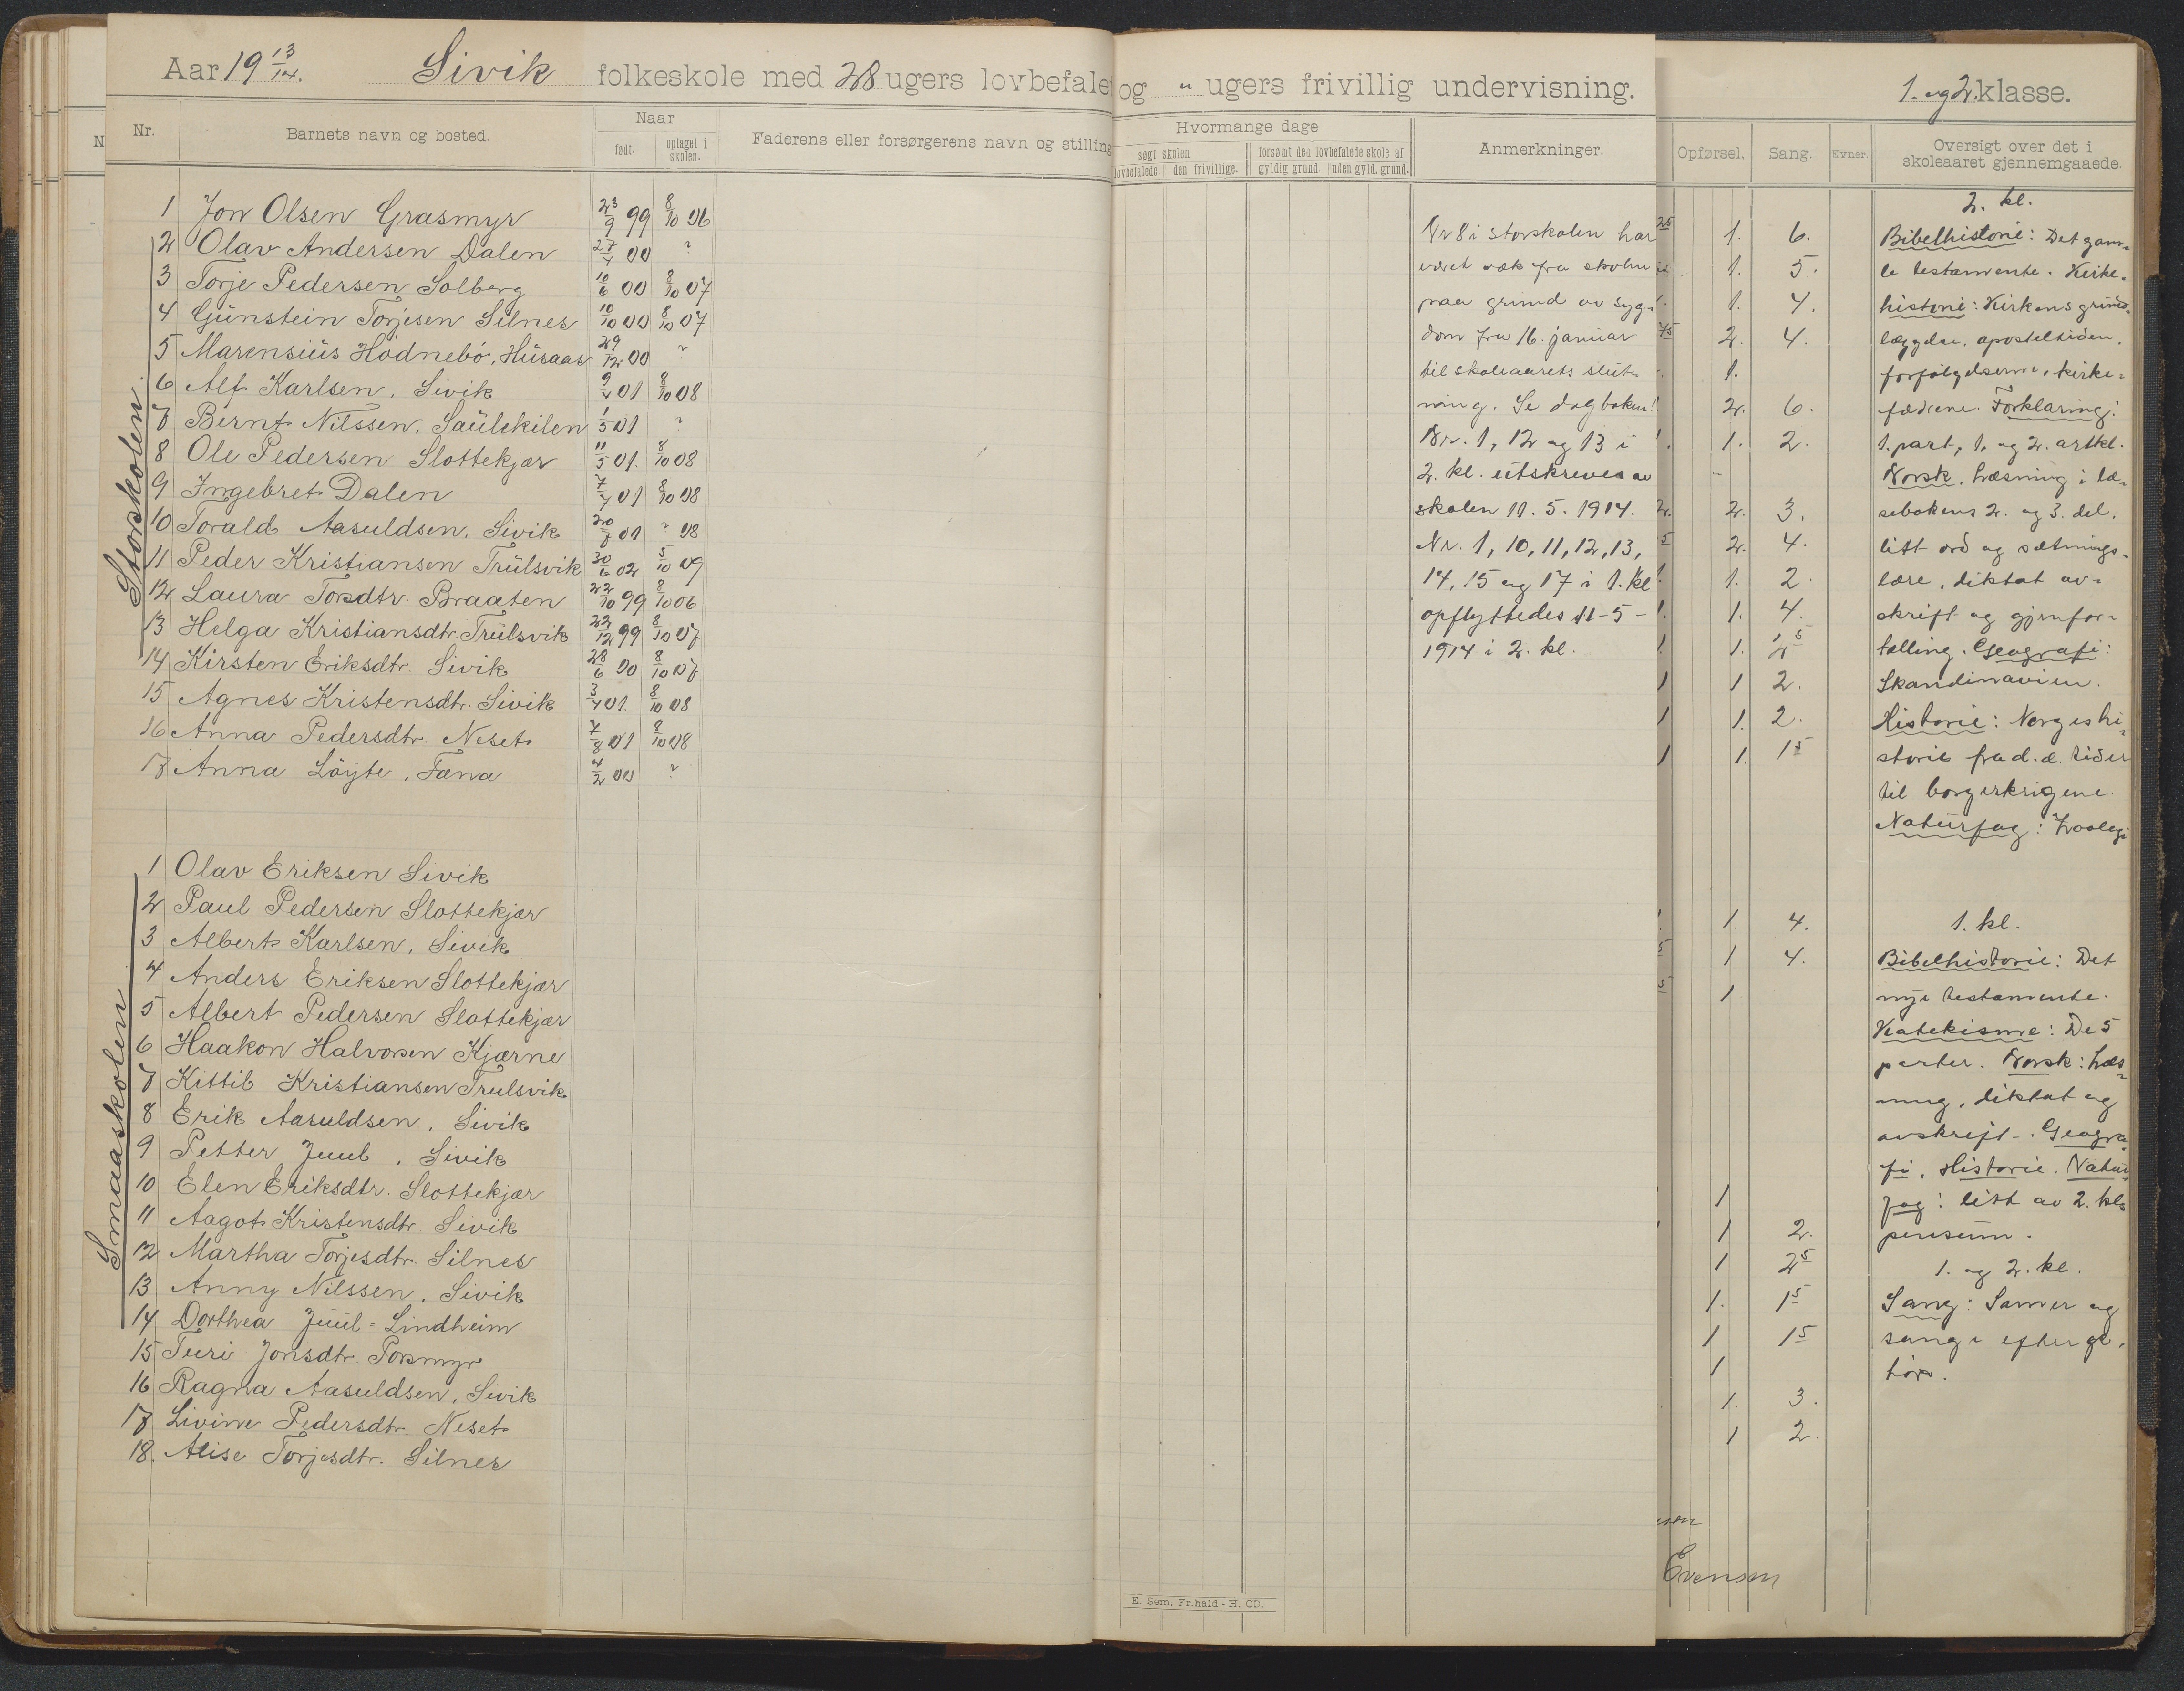 Aar 19 13/14. Sivik folkeskole med 28 ugers lovbefale og " ugers frivillig undervisning.
1. og 2. klasse.
Nr. Barnets navn og bosted. Naar født. optaget i skolen. Faderens eller forsørgerens navn og stilling
Storskolen.
1 Jon Olsen Grasmyr 23/9 99 8/10 06
2 Olav Andersen Dalen 27/4 00 ?
3 Torje Pedersen Solberg 10/6 00 8/10 07
4 Günstein Torjesen Silnes 10/10 00 8/10 07
5 Marensiüs Hødnebø, Hüsaas 29/12 00 ?
6 Alf Karlsen, Sivik 9/4 01 8/10 08
7 Bernt Nilssen, Saülekilen 1/5 01 ?
8 Ole Pedersen Slottekjær 11/5 01. 8/10 08
9 Ingebret Dalen 7/7 01 8/10 08
10 Torald Aasuldsen, Sivik 20/8 01 ? 08
11 Peder Kristiansen Trülsvik 30/6 02 5/10 09
12 Laura Torsdtr. Braaten 22/10 99 8/10 06
13 Helga Kristiansdtr. Trülsvik 22/12 99 8/10 07
14 Kirsten Eriksdtr. Sivik 28/6 00 8/10 07
15 Agnes Kristensdtr. Sivik 3/4 01. 8/10 08
16 Anna Pedersdtr. Neset 7/8 01 8/10 08
17 Anna Løyte, Fæna 4/2 00 ?
Smaaskolen
1 Olav Eriksen Sivik
2 Paul Pedersen Slottekjær
3 Albert Karlsen, Sivik
4 Anders Eriksen Slottekjær
5 Albert Pedersen Slottekjær
6 Haakon Halvorsen Kjærne
7 Kittil Kristiansen Trulsvik
8 Erik Aasuldsen, Sivik
9 Petter Juul, Sivik
10 Elen Eriksdtr. Slottekjær
11 Aagot Kristensdtr Sivik
12 Martha Torjesdtr. Silnes
13 Anny Nilssen, Sivik
14 Dorthea Jüül = Lindheim
15 Turi Jonsdtr. Tormyr
16 Ragna Aasuldsen, Sivik
17 Livine Pedersdtr. Neset
18. Alise Torjesdtr. Silnes
Hvormange dage
søgt skolen
forsømt den lovbefalede skole af
lovbefalede. den frivillige. gyldig grund. uden gyld. grund.
Anmerkninger.
Nr 8 i storskolen har
været væk fra skolen
paa grund av syg-
dom fra 16. januar
til skoleaarets slut-
ning. Se dagboken!
Nr. 1, 12 og 13 i
2. kl. utskreves av
skolen 11. 5. 1914.
Nr. 1, 10, 11, 12, 13,
14, 15 og 17 i 1. kl
opflyttedes 11-5-
1914 i 2. kl.
E. Sem, Fr.hald - H. CD.
Opførsel. Sang. Evner.
1. 6.
1. 5.
1. 4.
2. 4.
1.
2. 6.
1. 2.
-
2. 3.
2. 4.
1. 2.
1. 4.
1. 2 5
1 2.
1. 2.
1. 1 5
1. 4.
1 4.
1
1
1 2.
1 2 5
1. 1 5
1 1 5
1
1. 3.
1 2.
Evensen
Oversigt over det i
skoleaaret gjennemgaaede.
2. kl.
Bibelhistorie: Det gam-
le testamente. Kirke-
historie: Kirkens grund-
læggelse, aposteltiden,
forfølgelserne, kirke-
fædrene. Forklaring:
1. part, 1. og 2. artkl.
Norsk. Læsning i læ-
sebokens 2. og 3. del,
litt ord og sætnings-
lære, diktat av-
skrift og gjenfor-
tælling. Geografi:
Skandinavien.
Historie: Norges hi-
storie fra d. æ. tider
til borgerkrigene.
Naturfag: Zoologi
1. kl.
Bibelhistorie: Det
nye testamente.
Katekisme: De 5
parter. Norsk: Læs-
ning, diktat og
avskrift. Geogra-
fi. Historie. Natur-
fag: litt av 2. kls
pensum.
1. og 2. kl.
Sang: Samer og
sange efter ge-
hør.